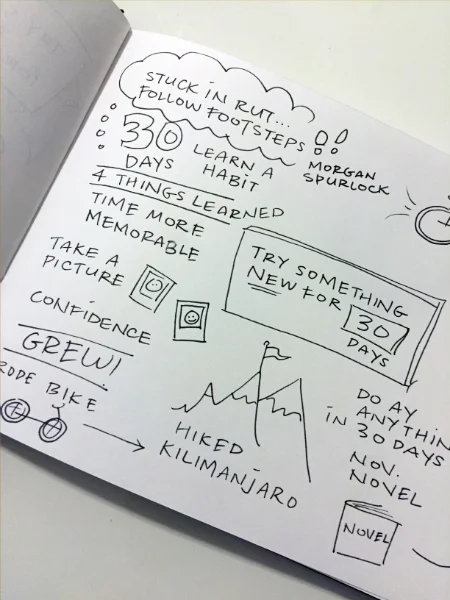 STUCK IN RUT...
FOLLOW FOOTSTEPS
MORGAN
SPURLOCK
30
DAYS
LEARN A
HABIT
4 THINGS LEARNED
TIME MORE
MEMORABLE
TAKE A
PICTURE
CONFIDENCE
GREW!
RODE BIKE
HIKED
KILIMANJARO
TRY SOMETHING
NEW FOR
30
DAYS
DO AY
ANYTHIN
IN 30 DAYS
NOV.
NOVEL
NOVEL